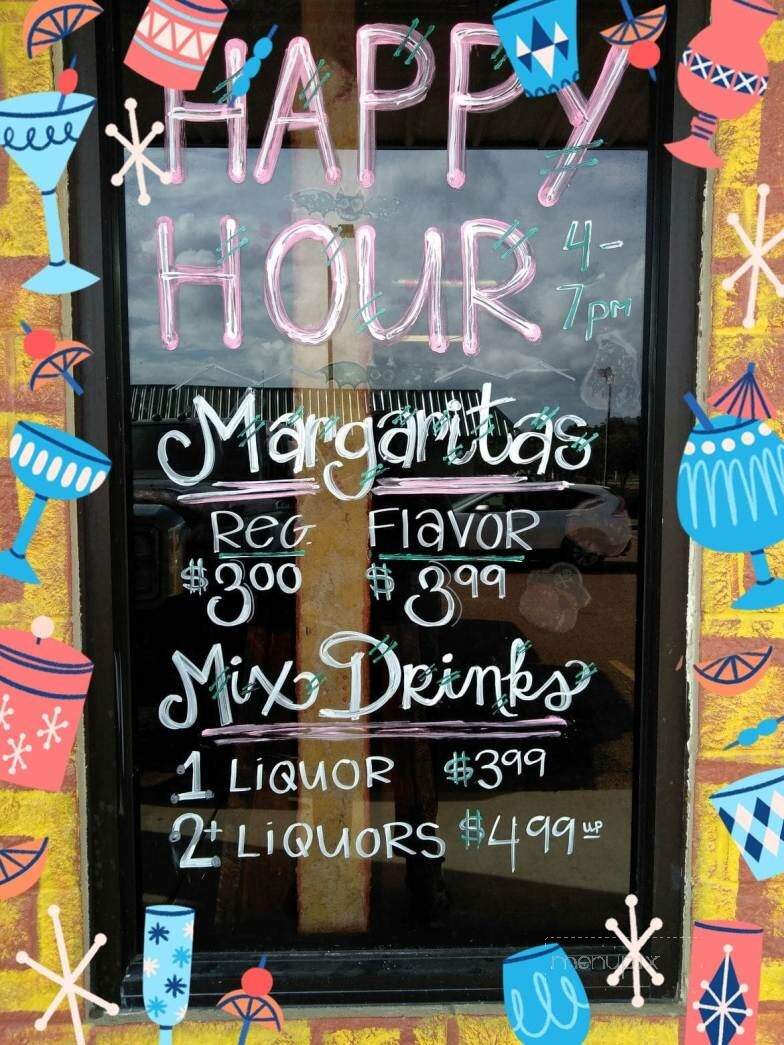 HAPPY
HOUR 4-
7pm
Margaritas
REG. FLAVOR
$3.00 $3.99
Mix Drinks
1 LIQUOR $3.99
2+ LIQUORS $4.99 UP
menupix